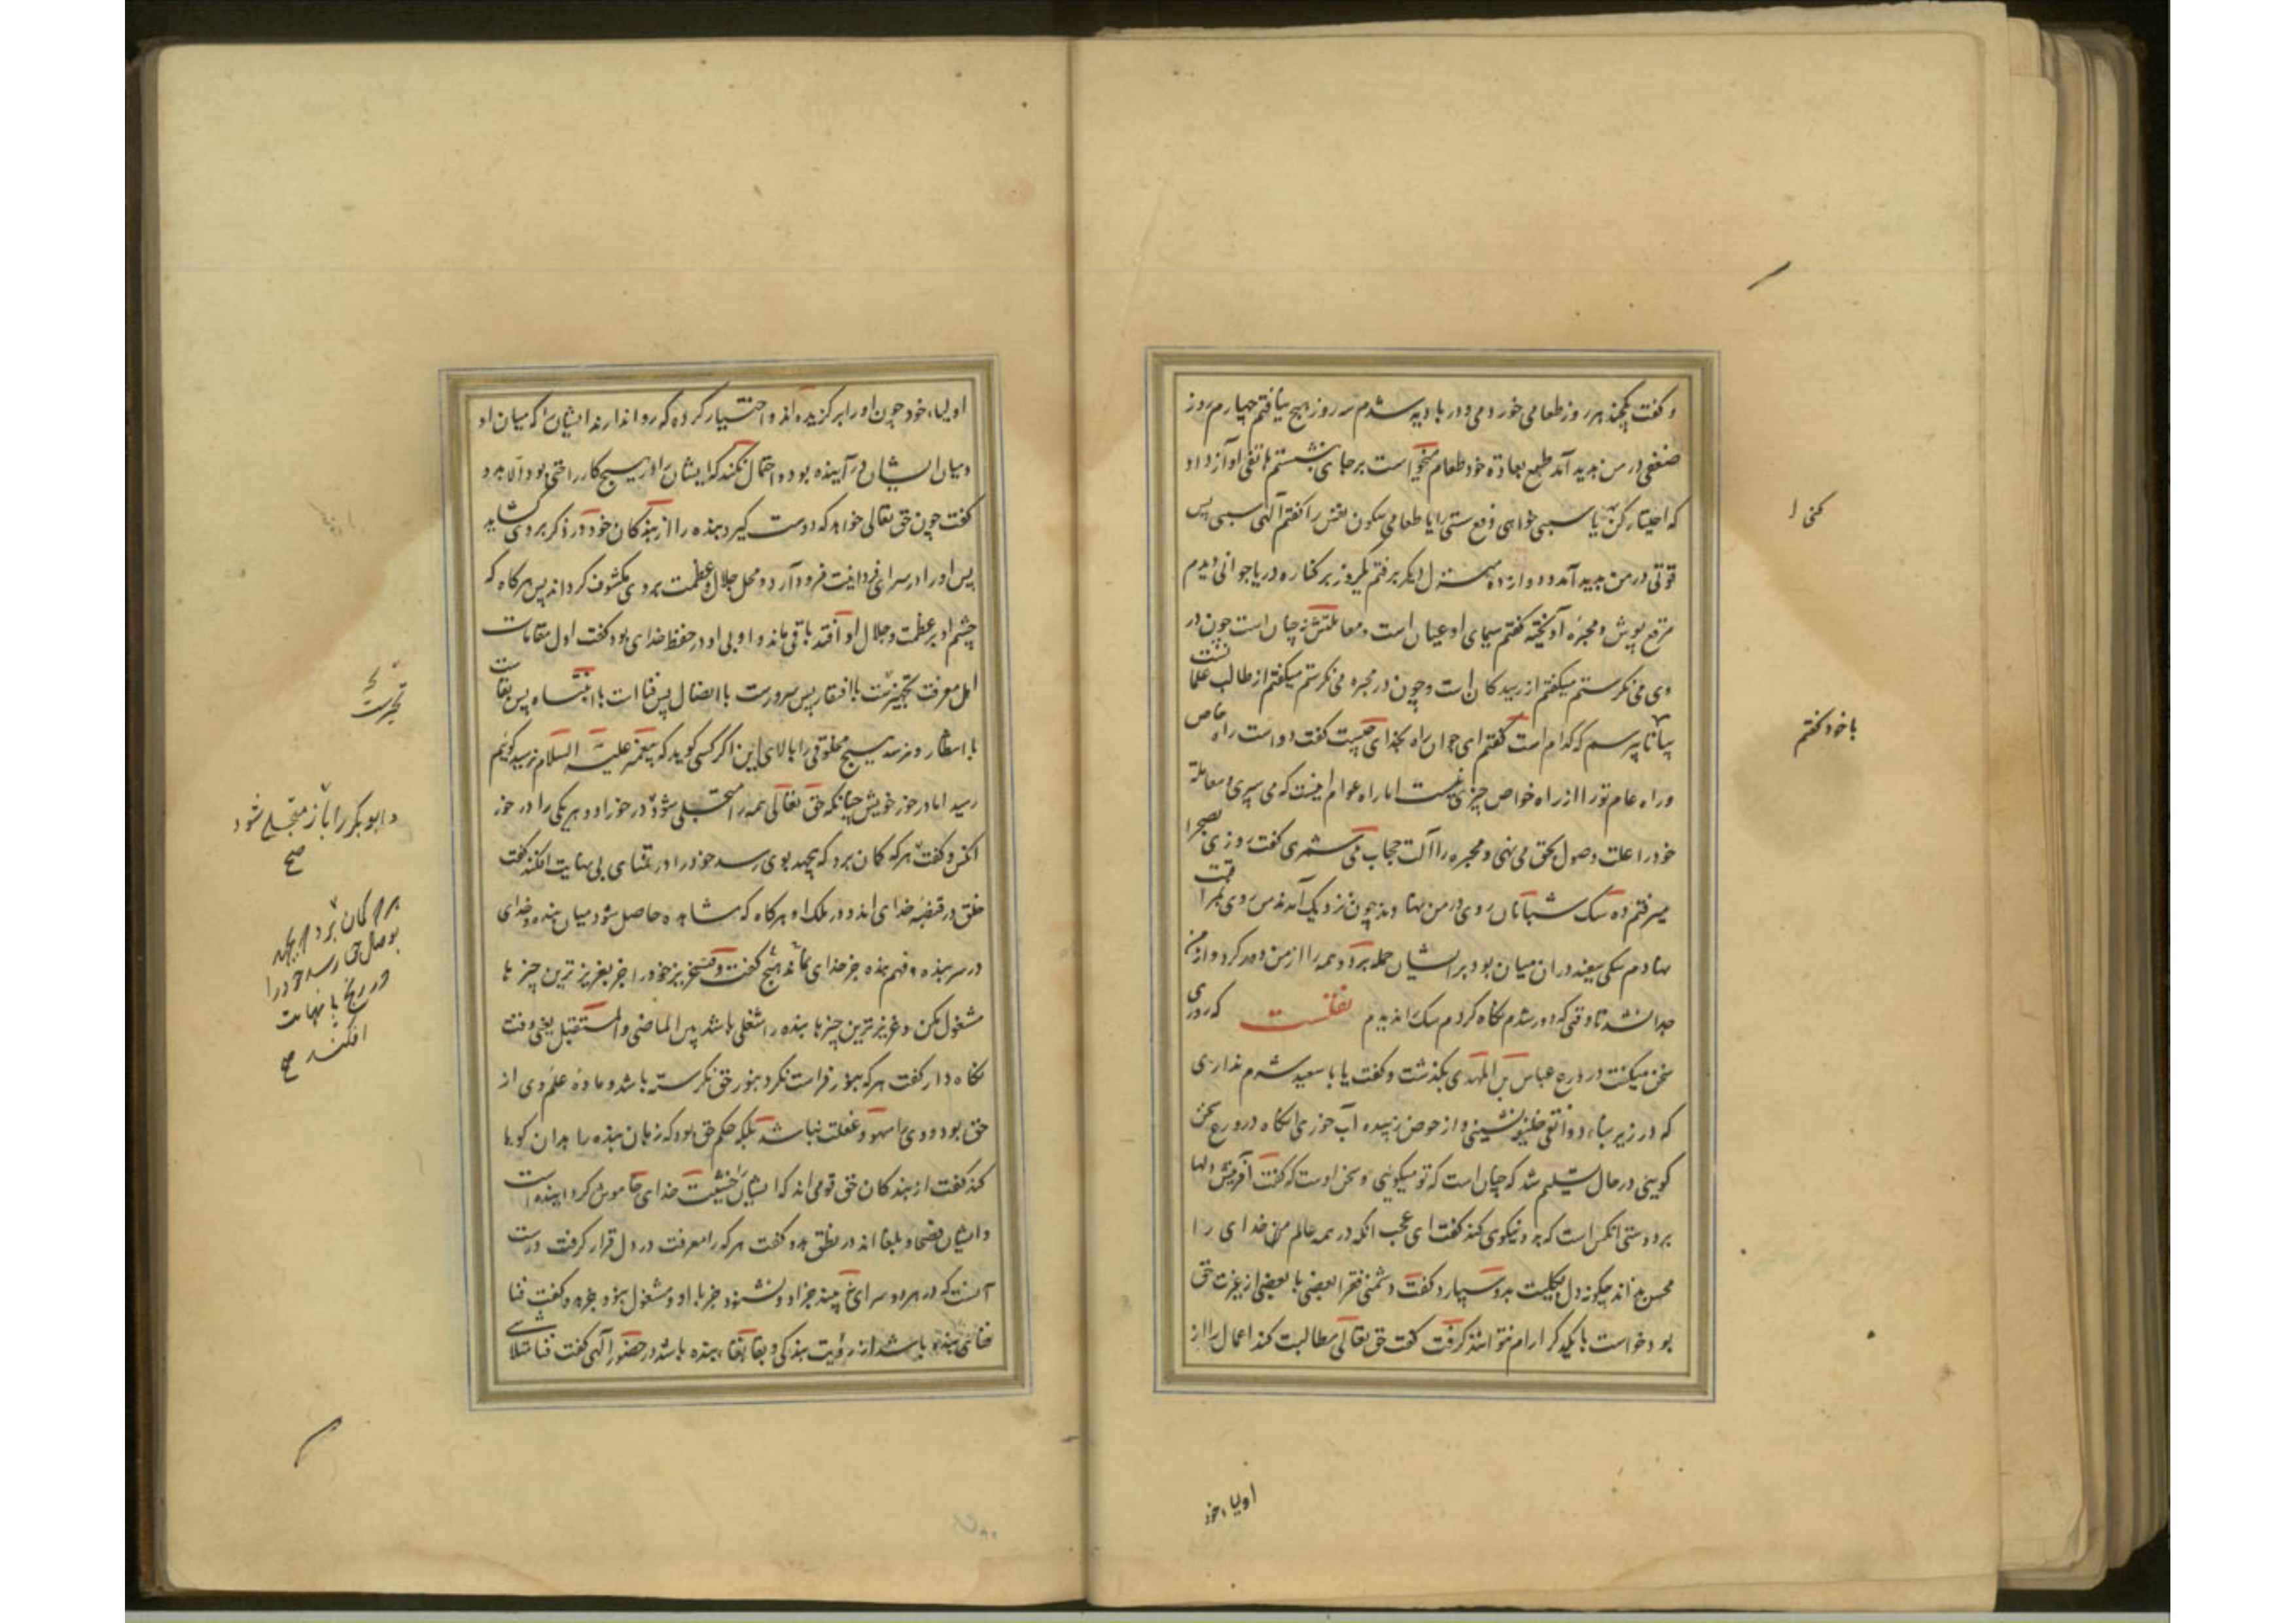 و گفت یکچند هر روز طعامی خوردمی و در بادیه شدم سه روز هیچ نیافتم چهارم روز
ضعفی در من پدید آمد طبع بعادة خود طعام میخواست بر جای بنشستم هاتفی آواز داد
که اختیار کن تا سببی خواهی دفع سستی را یا طعامی سکون نفس را گفتم الهی سببی پس
قوتی در من پدید آمد و دوازده منزل دیگر برفتم یکروز بر کناره دریا جوانی دیدم
مرقع پوش و محبره آویخته گفتم سیمای او عیان است و معاملتش نه چنان است چون در
وی می نگرستم میگفتم از رسیدگان است و چون در محبره می نگرستم میگفتم از طالب علمانست
بیا تا بپرسم که کدام است گفتم ای جوان راه بخدای چیست گفت دو است راه خاص
و راه عام تو را از راه خواص چیزی نیست اما راه عوام اینست که می سپری و معاملة
خود را علت وصول بحق می نهی و محبره را آلت حجاب می شمری گفت روزی بصحرا
میرفتم ده سگ شبانان روی در من نهادند چون نزدیک آمدند من روی بمراقبت
نهادم سگی سفید در ان میان بود بر ایشان حمله برد و همه را از من دور کرد و از من
جدا نشد تا وقتی که دور شدم نگاه کردم سگ را ندیدم نقلست که روزی
سخن میگفت در ورع عباس بن المهتدی بگذشت و گفت یا با سعید شرم نداری
که در زیر بناء دوانقی نشینی و از حوض زبیده آب خوری انگاه در ورع سخن
گویی در حال تسلیم شد که چنان است که تو میگویی و سخن اوست که گفت آفرینش دلها
بر دوستی آنکس است که بدو نیکوی کند گفت ای عجب انکه در همه عالم مر خدای را
محسن نداند چگونه دل بکلیت بدو سپارد و گفت دشمنی فقرا بعضی با بعضی از غیرت حق
بود خواست با یکدگر ارام نتوانند گرفت گفت حق تعالی مطالبت کند اعمال را از
کنی ا
با خود گفتم
اولیاء خود
اولیاء خود چون او را برگزیده اند و اختیار کرده که روا ندارند ایشان را که میان او
و میان ایشان در آینده بود و احتمال نکند که ایشان را در هیچ کار راحتی بود الا بدو
گفت چون حق تعالی خواهد که دوست گیرد بنده را از بندگان خود در ذکر بر وی گشاید
پس او را در سرای فردانیت فرود آرد و محل جلال و عظمت بر وی مکشوف گرداند پس هرگاه که
چشم او بر عظمت و جلال او افتد باقی ماند او بی او در حفظ خدای بود گفت اول مقامات
اهل معرفت تحیرست با افتقار پس سرورست با اتصال پس فناست با انتباه پس بقاست
با انتظار و نرسد هیچ مخلوقی را بالای این اگر کسی گوید که پیغمبر علیه السلام نرسید گوئیم
رسید اما در خور خویش چنانکه حق تعالی همه را متجلی شود در خور او و هر یکی را در خور
آنکس و گفت هر که گمان برد که بجهد بوی رسد خود را در تمنای بی نهایت افکند گفت
خلق در قبضه خدای اند و در ملک او هرگاه که مشاهده حاصل شود میان بنده و خدای
در سر بنده و فهم بنده جز خدای نماند هیچ گفت وقت عزیز خود را جز بعزیز ترین چیزها
مشغول مکن و عزیز ترین چیزها بنده را شغلی باشد بین الماضی و المستقبل یعنی وقت
نگاه دار گفت هر که بنور فراست نگرد بنور حق نگرسته باشد و ماده علم وی از
حق بود و وی را سهو و غفلت نباشد بلکه حکم حق بود که زبان بنده را بدان گویا
کند گفت از بندگان حق قومی اند که ایشان را خشیت خدای خاموش گردانیده است
و ایشان فصحا و بلغا اند در نطق بدو گفت هر که را معرفت در دل قرار گرفت درست
آنست که در هر دو سرای نبیند جز او و نشنود جز با او و مشغول نبود جز بدو گفت فنا
فنای بنده باشد از رؤیت بندگی و بقا بقاء بنده باشد در حضور الهی گفت فنا متلاشی
تحیرست
و ابو بکر را باز متجلی شود
صح
هر که گمان برد که بی جهد
بوصال حق رسد خود را
در رنج بی نهایت
افکند صح